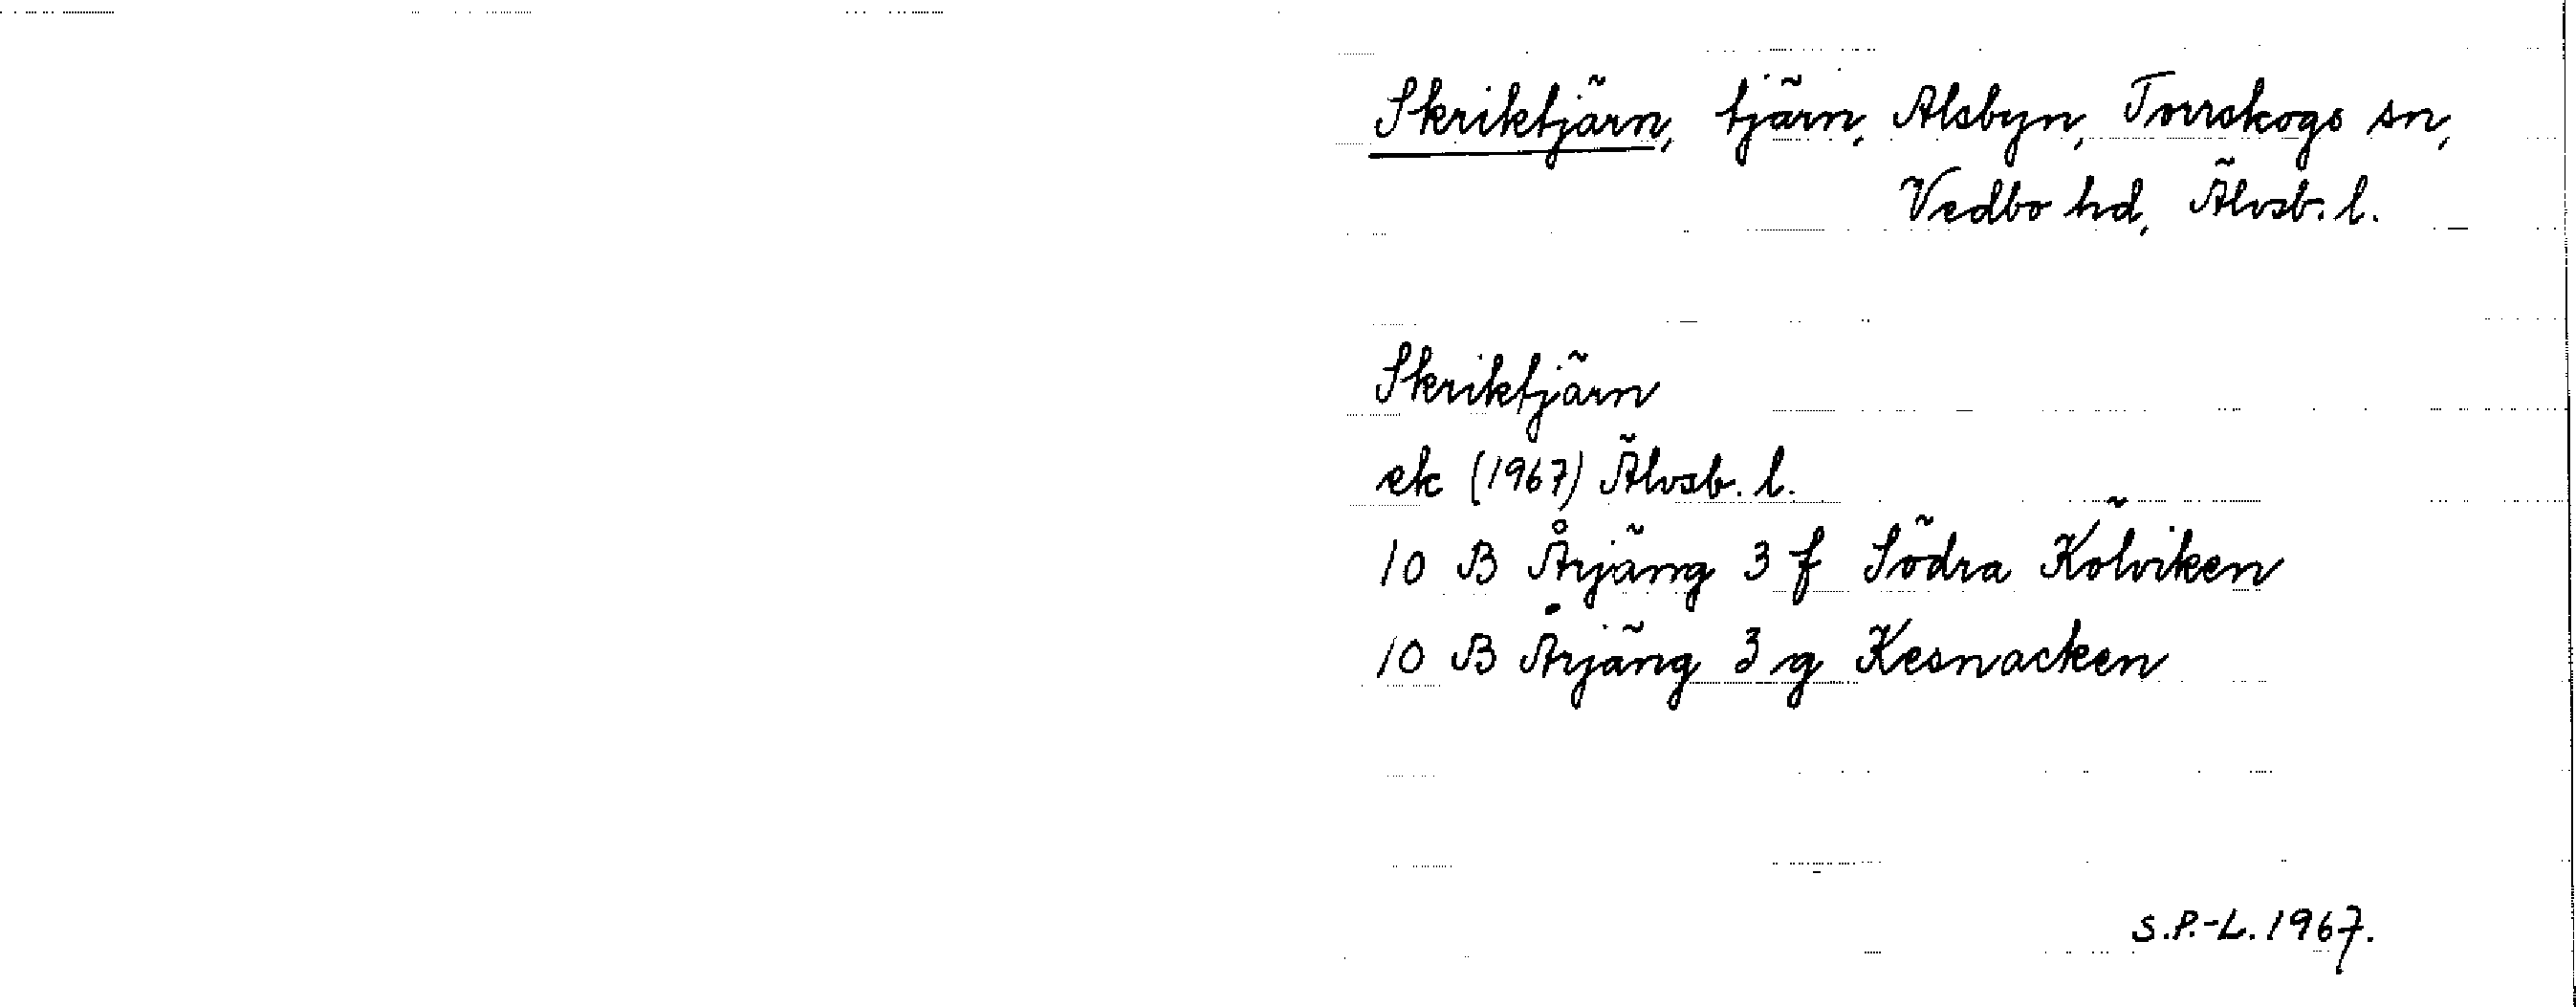 Skriktjärn, tjärn, Alsbyn, Torrskogs sn,
Vedbo hd, Älvsb. l.
Skriktjärn
ek (1967) Älvsb. l.
10 B Årjäng 3 f Södra Kölviken
10 B Årjäng 3 g Kesnacken
S.P.-L. 1967.